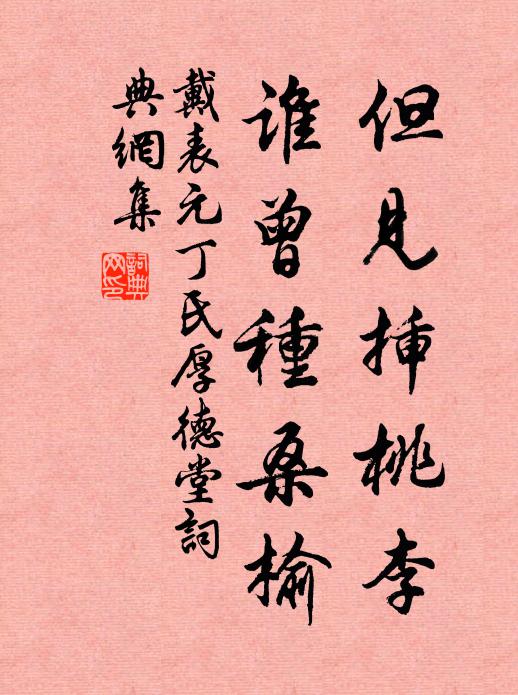 但見揷桃李
誰曾種桑榆
戴表元丁氏厚德堂詞
典網集
詞典
网印